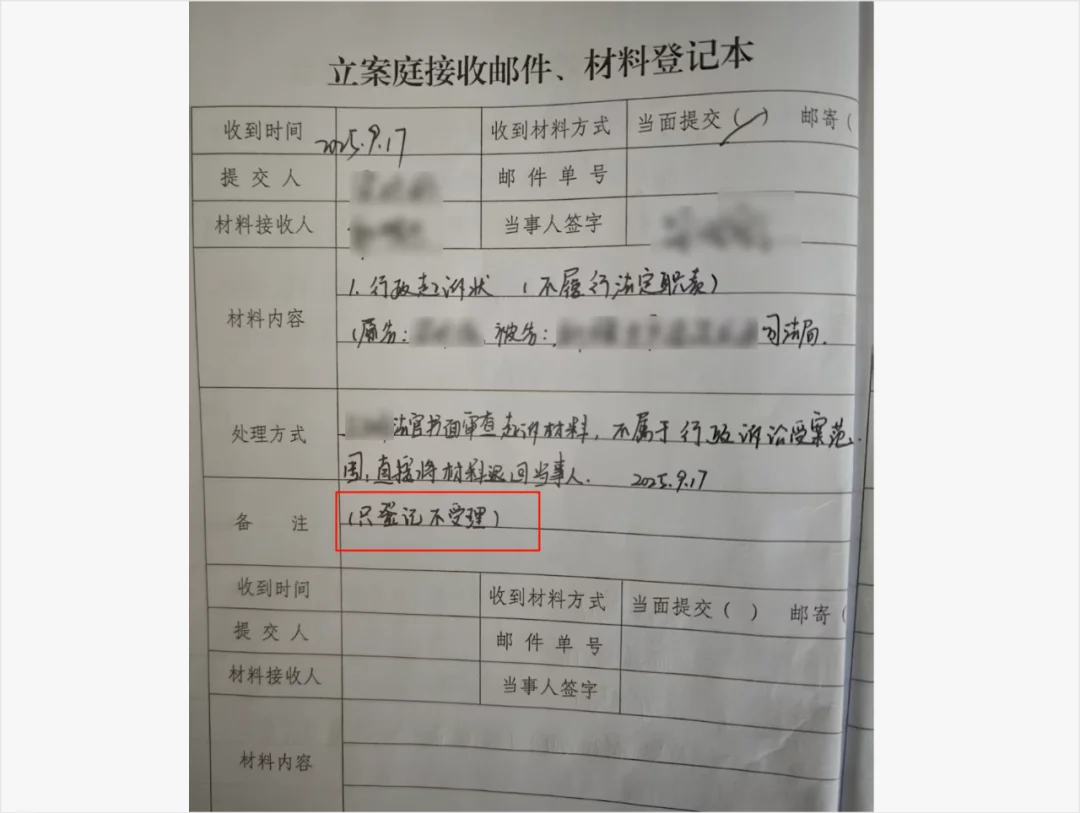 立案庭接收邮件、材料登记本
收到时间 2025.9.17 收到材料方式 当面提交(✓) 邮寄(
提交人 邮件单号
材料接收人 当事人签字
1. 行政起诉状 (不履行法定职责)
材料内容
(原告: 被告: 司法局.
处理方式 法官书面审查起诉材料,不属于行政诉讼受案范
围,直接将材料退回当事人. 2025.9.17
备注 (只登记不受理)
收到时间 收到材料方式 当面提交( ) 邮寄(
提交人 邮件单号
材料接收人 当事人签字
材料内容